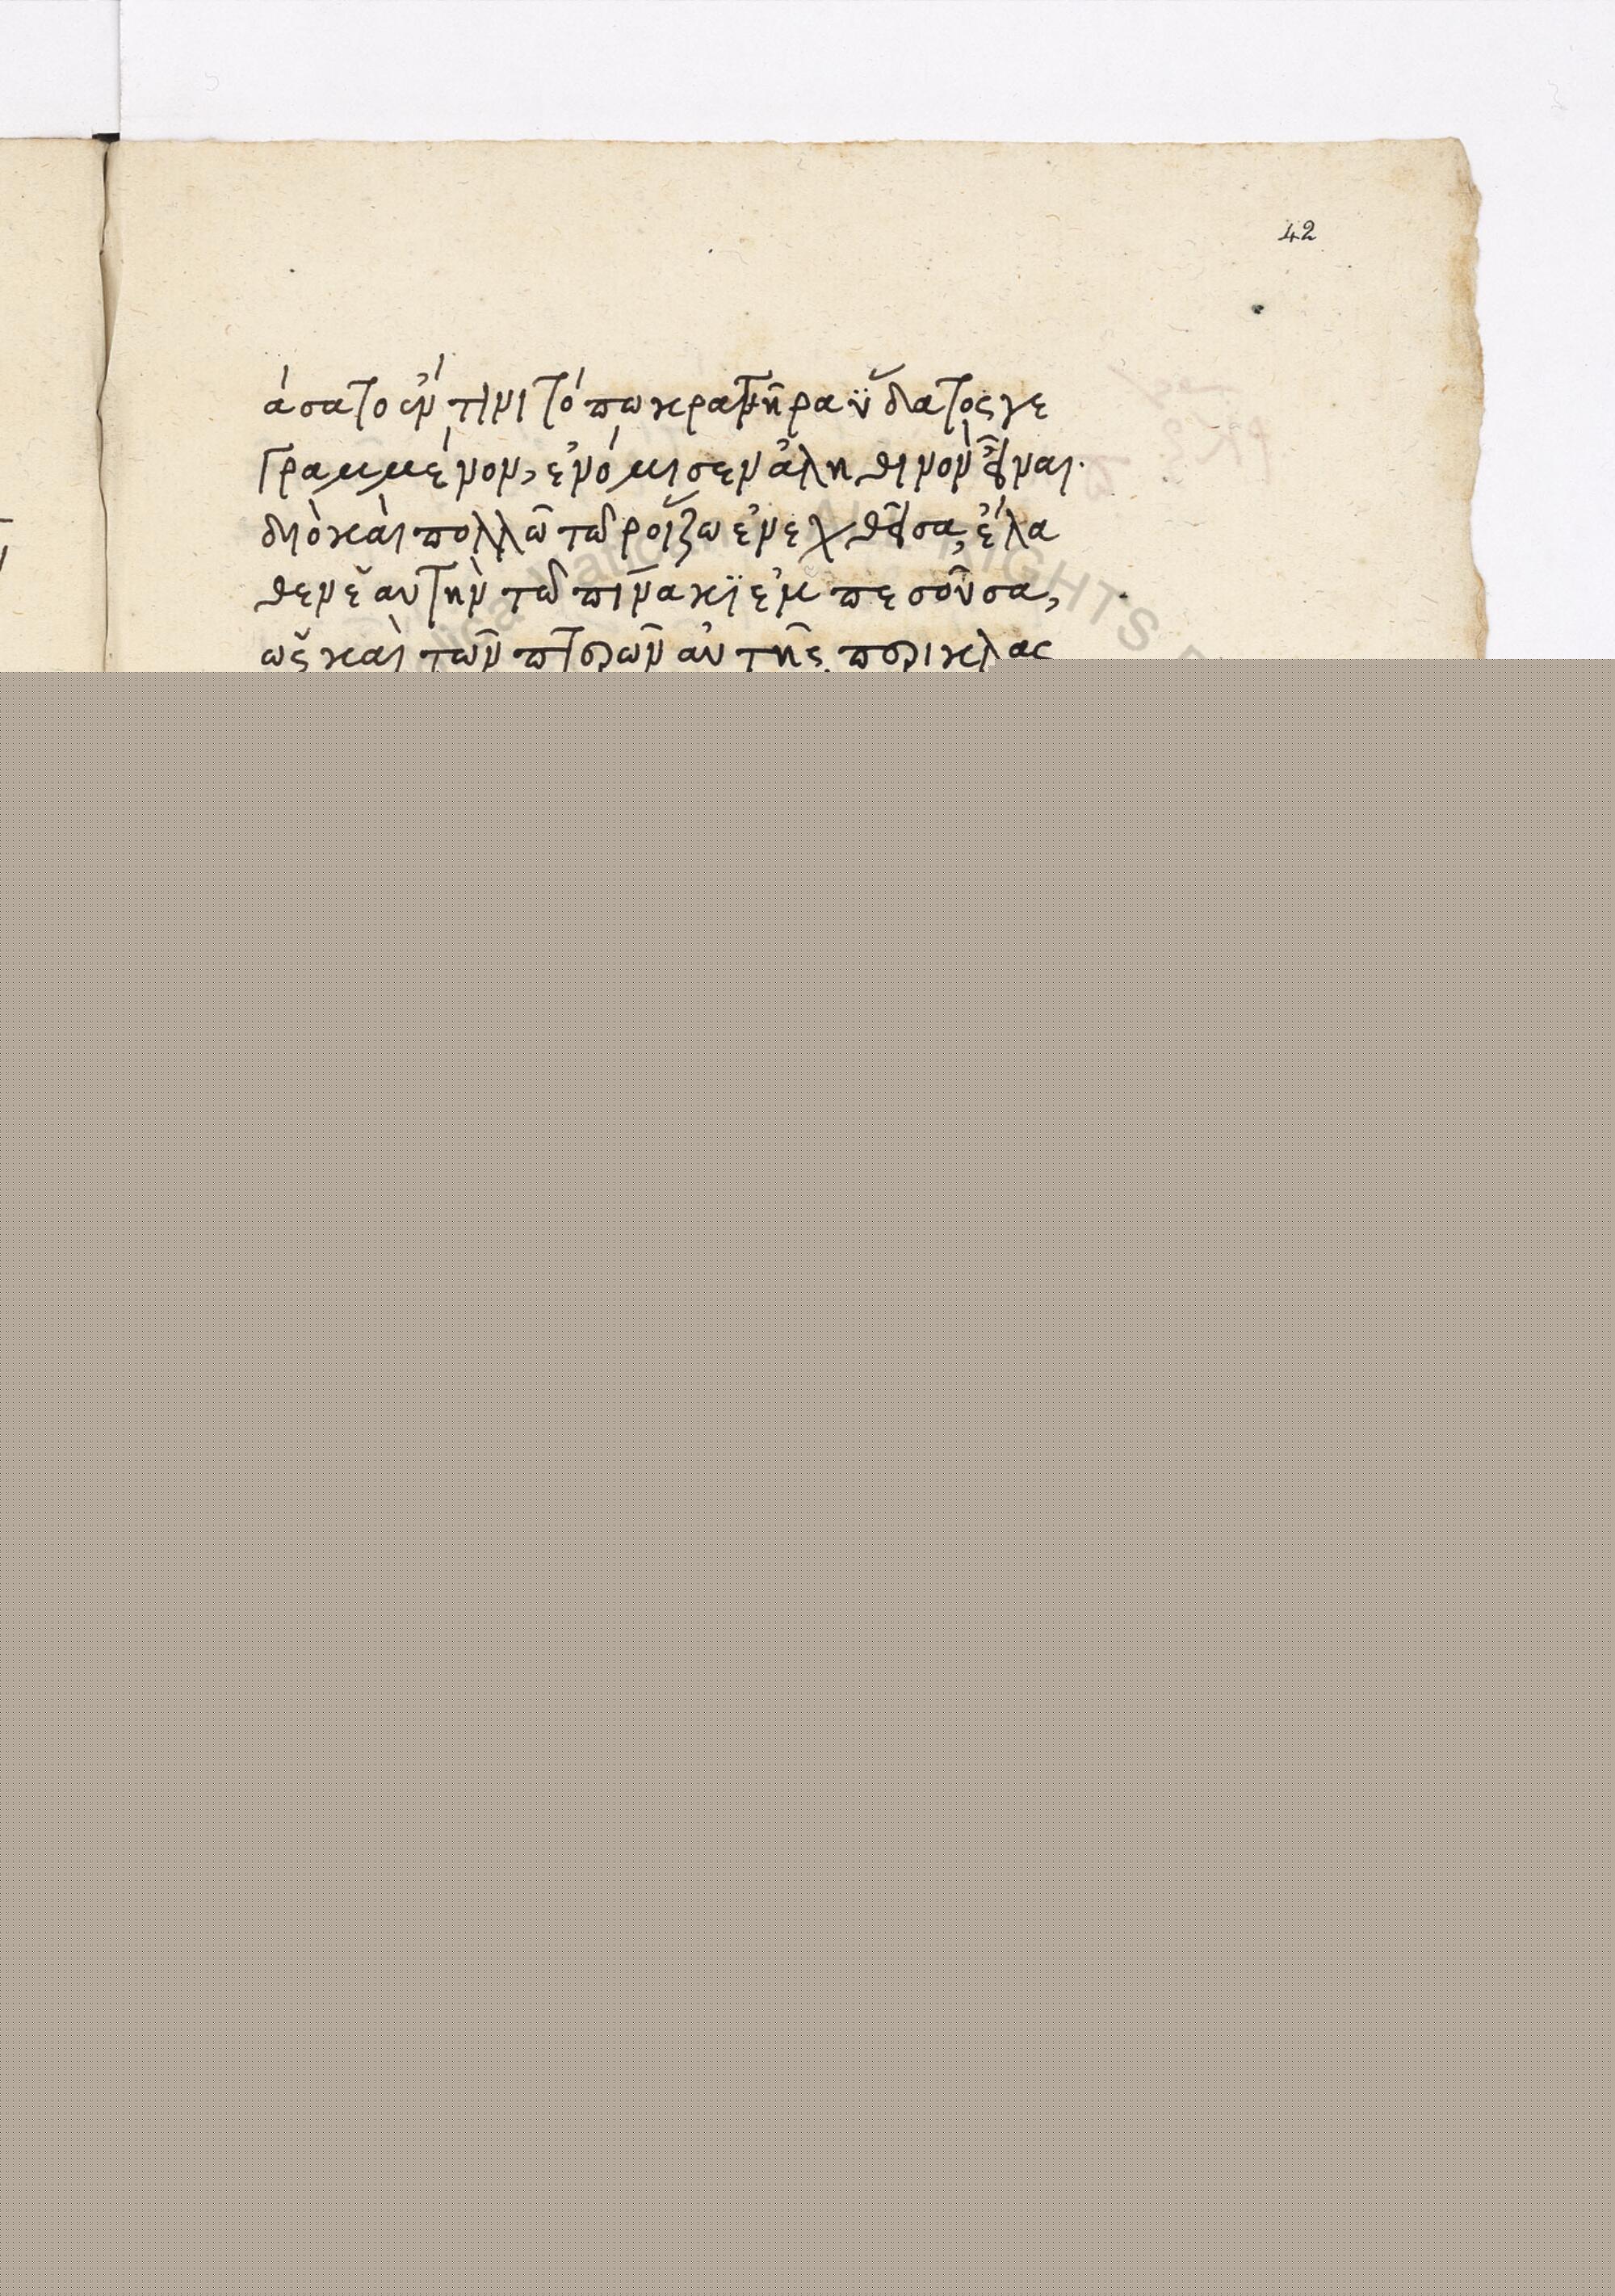 42
άσατο ἔν τινι τόπω κρατῆρα ὕδατος γε
γραμμένον, ἐνόμισεν ἀληθινὸν εἶναι.
διὸ καὶ πολλῶ τῶ ροίζω ἐνεχθεῖσα, ἔλα
θεν ἑαυτὴν τῶ πίνακϊ ἐμπεσοῦσα,
ὡς καὶ τῶν πτερῶν αὐτῆς περικλας